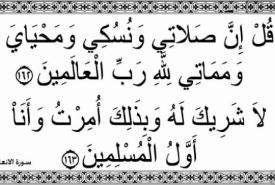 قُلْ إِنَّ صَلَاتِي وَنُسُكِي وَمَحْيَايَ
وَمَمَاتِي لِلَّهِ رَبِّ الْعَالَمِينَ ﴿١٦٢﴾
لاَ شَرِيكَ لَهُ وَبِذَلِكَ أُمِرْتُ وَأَنَاْ
أَوَّلُ الْمُسْلِمِينَ ﴿١٦٣﴾
سورة الانعام